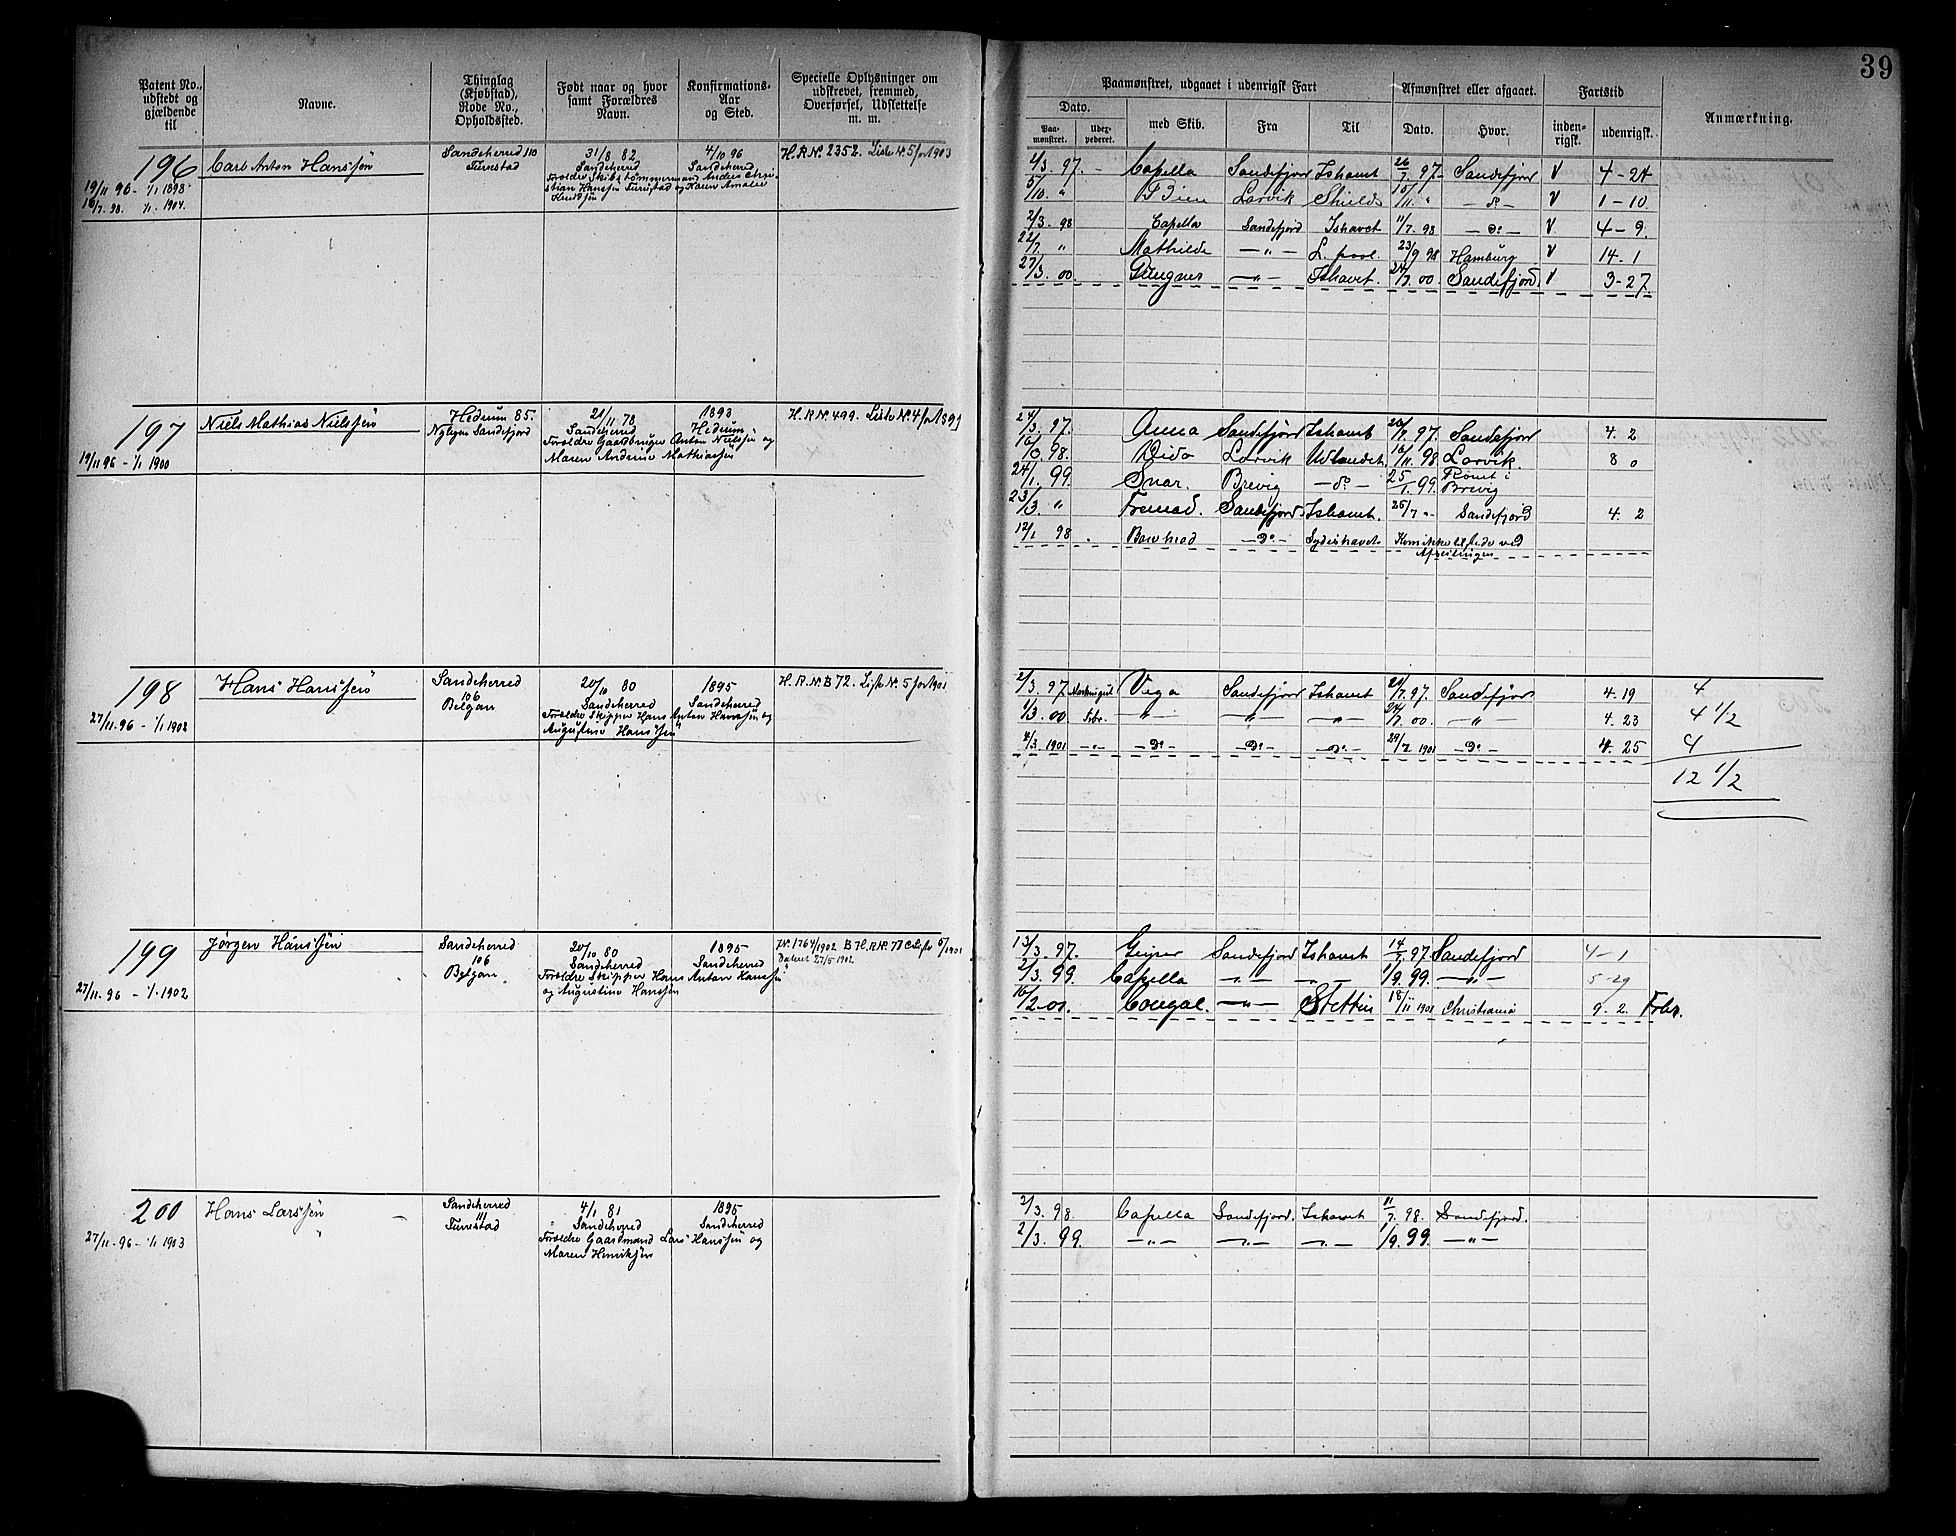 39
Patent No., udstedt og gjældende til
Navne.
Thinglag (Kjøbstad), Rode No., Opholdssted.
Født naar og hvor samt Forældres Navn.
Konfirmations-Aar og Sted.
Specielle Oplysninger om udskrevet, fremmed, Overførsel, Udslettelse m. m.
Paamønstret, udgaaet i udenrigsk Fart
Dato.
Paa-mønstret.
med Skib.
Fra
Til
Afmønstret eller afgaaet.
Dato.
Hvor.
Fartstid
inden-rigsk.
udenrigsk.
Anmærkning.
196
19/11 96 - 1/1 1898
16/7. 98. 1/1. 1904.
Carl Anton Hanssen
Sandeherred 110
Furustad
31/8 82
Sandeherred
Forældre Skibstømmermand Anders Chri-
stian Hanssen Furustad og Karen Amalie
Knudsen
4/10 96
Sandeherred
H.R.N. 2352. Liste N. 5 for 1903
2/3. 97. - Capella Sandefjord Ishavet 26/7. 97. Sandefjord V 4 - 24
5/10. " Larvik Shields 15/11. " - do - V 1 - 10
2/3. 98 Capella Sandefjord Ishavet 11/7. 98 - do - V 4 - 9.
22/7. " Mathilde - " - L.pool. 23/9 98 Hamburg V 14 - 1
27/3. 00. - " - Ishavet. 24/7. 00. Sandefjord. V 3 - 27.
197
19/11 96 - 1/1 1900
Niels Mathias Nielssen
Hedrum 85.
Nybyen Sandefjord
21/11 78
Sandeherred
Forældre Gaardbruger Anton Nielsen og
Maren Andrine Mathiassen
1893
Hedrum
H.R.N. 499. Liste N. 4 for 1899
24/3. 97. Anna Sandefjord Ishavet 20/7. 97. Sandefjord 4. 2
98. Dido Larvik Udlandet 16/11. 98 Larvik. 8 0
24/1. 99. Snar. Brevig - do - 25/1. 99. Rømt i Brevig
23/3. " Fremad. Sandefjord Ishavet. 25/7 " - Sandefjord 4. 2
12/1 98 Bowhead - Do - Sydishavet Kom ikke tilstede ved
Afreisningen
198
27/11. 96 - 1/1 1902
Hans Hanssen
Sandeherred
106
Belgau
20/10 80
Sandeherred
Forældre Skipper Hans Anton Hanssen og
Augustine Hanssen
1895
Sandeherred
H.R.N. B 72. Liste N. 5 for 1901
2/3. 97 Vega Sandefjord Ishavet 21/7. 97. Sandefjord 4. 19 4
1/3. 00 Febr. - " - - " - - " - 24/7. 00. - " - 4. 23 4 1/2
4/3. 1901 - " - - Do - - Do - - Do - 29/7. 1901 - Do - 4. 25 4
12 1/2
199
27/11. 96 - 1/1. 1902
Jørgen Hanssen
Sandeherred
106
Belgau
20/10 80
Sandeherred
Forældre Skipper Hans Anton Hanssen
og Augustine Hanssen
1895
Sandeherred
J.N. 1764/1902 B H.R.N. 73
Dateret 27/5 1902.
13/3. 97. Geiser Sandefjord Ishavet 14/7. 97 Sandefjord 4 - 1
2/3. 99. Capella - " - - " - 1/9. 99. - " - 5 - 29
16/2. 01. Cougal. - " - Stettin 18/11 1901 Christiania 9. 2. Febr.
200
27/11 - 96 - 1/1 1903
Hans Larssen
Sandeherred
111
Furustad
4/1 81
Sandeherred
Forældre Gaardmand Lars Hanssen og
Maren Henriksen
1895
Sandeherred
2/3. 98. Capella Sandefjord. Ishavet 11/7. 98. Sandefjord.
2/3. 99. - " - - " - - " - 1/9. 99. - " -